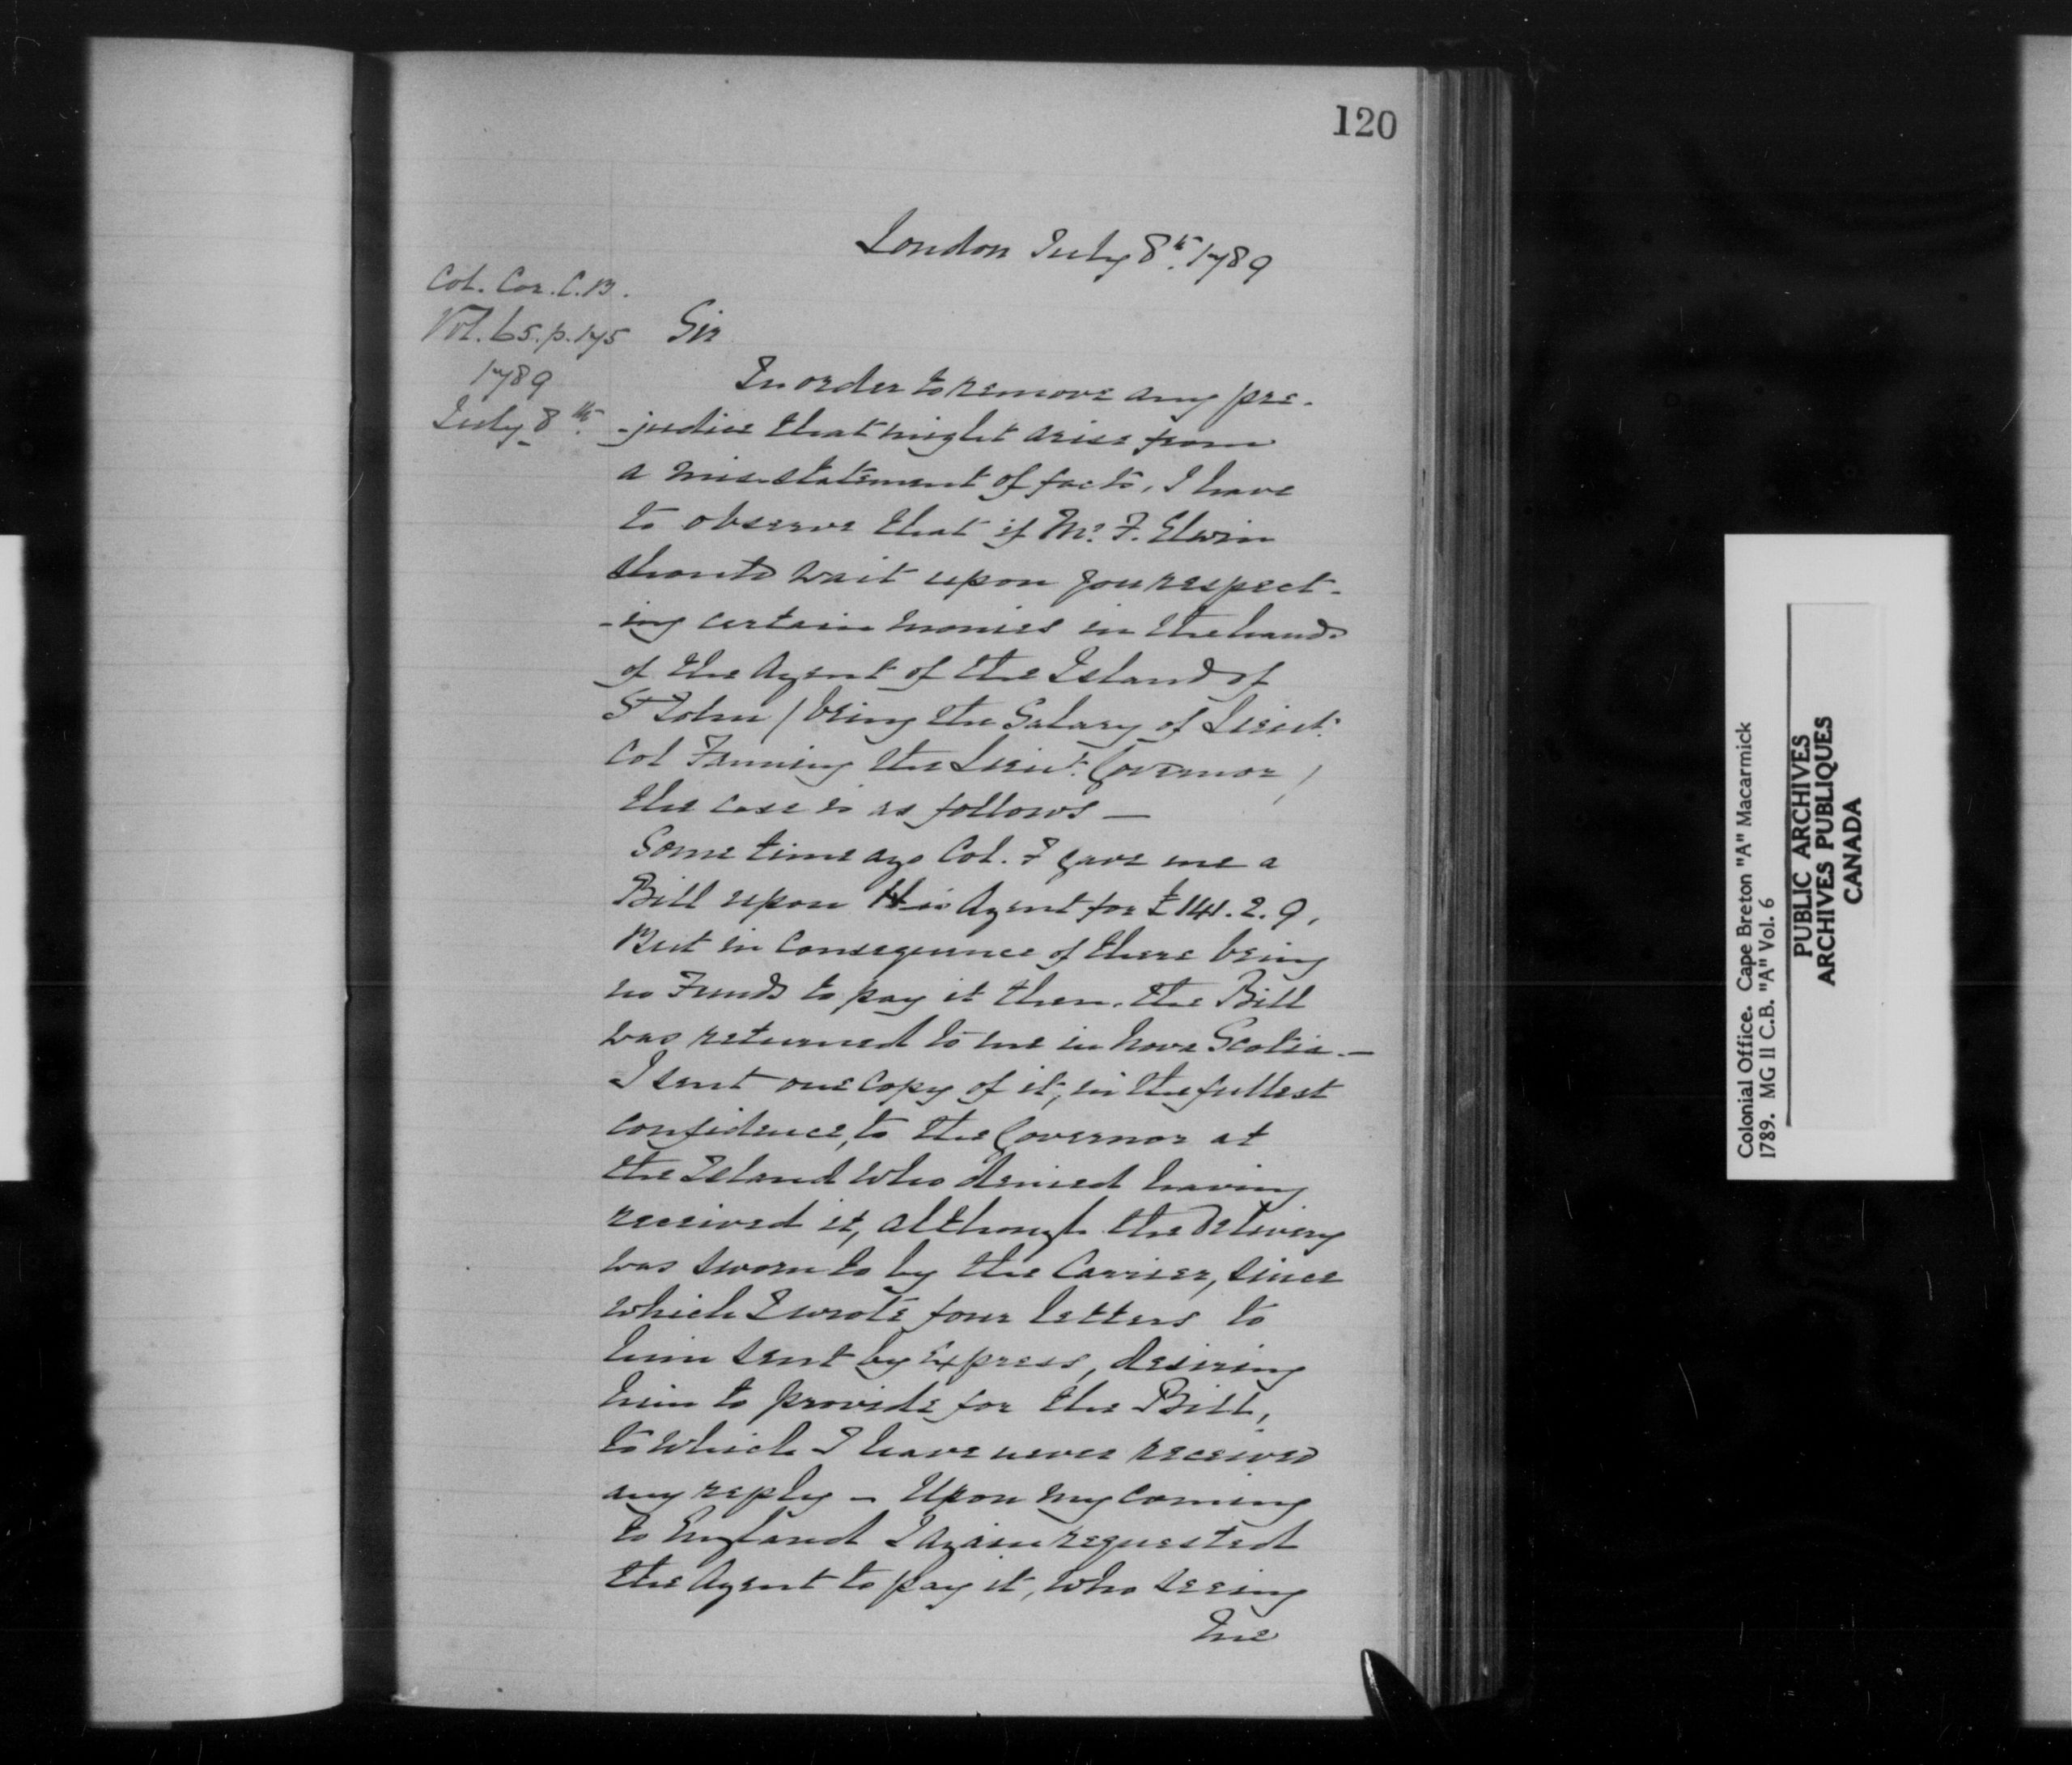 120
London July 8th. 1789
Col. Cor. C.B.
Vol. 65. p. 175
1789
July 8th.
Sir
In order to remove any pre-
-judice that might arise from
a mis-statement of facts, I have
to observe that if Mr. F. Elwin
should wait upon you respect-
-ing certain monies in the hands
of the Agent of the Island of
St John (being the Salary of Lieut.
Col Fanning the Lieut. Governor)
the case is as follows —
Some time ago Col. F gave me a
Bill upon His Agent for £141. 2. 9,
But in consequence of there being
no Funds to pay it then, the Bill
was returned to me in Nova Scotia. —
I sent one Copy of it, in the fullest
confidence, to the Governor at
the Island who denied having
received it, although the Delivery
was sworn to by the Carrier, since
which I wrote four letters to
him sent by Express, desiring
him to provide for the Bill,
to which I have never received
any reply — Upon my coming
to England I again requested
the Agent to pay it, who seeing
me
Colonial Office. Cape Breton "A" Macarmick
1789. MG 11 C.B. "A" Vol. 6
PUBLIC ARCHIVES
ARCHIVES PUBLIQUES
CANADA